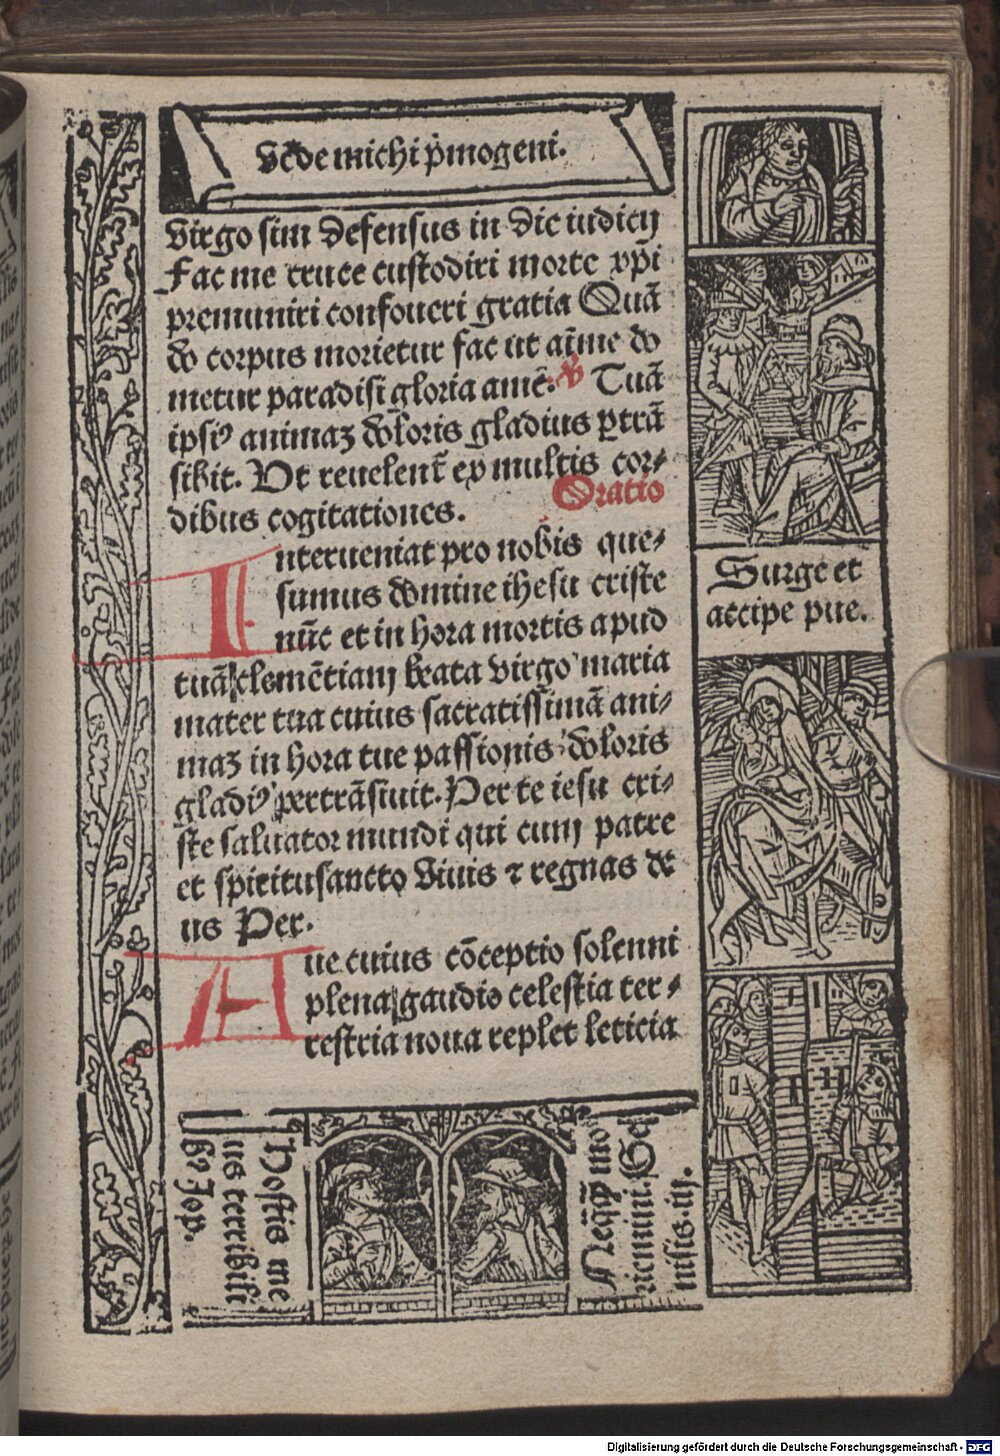 Vēde michi p̄mogeni.
Virgo sim defensus in die iudicij
Fac me cruce custodiri morte xp̄i
premuniri confoueri gratia Quā
do corpus morietur fac ut aīme do
metur paradisi gloria amē. ℣ Tuā
ipsiꝰ animaʒ doloris gladius ꝑtrā
sibit. Vt reuelent̄ ex multis cor⸗
dibus cogitationes.
Oratio
Interueniat pro nobis que⸗
sumus domine ihesu criste
nūc et in hora mortis apud
tuā clemētiam beata virgo maria
mater tua cuius sacratissimā ani⸗
maʒ in hora tue passionis doloris
gladiꝰ pertrāsiuit. Per te iesu cri⸗
ste saluator mundi qui cum patre
et spiritusancto Viuis ⁊ regnas de
us Per.
Aue cuius cōceptio solenni
plena gaudio celestia ter⸗
restria noua replet leticia
Surge et
accipe pue.
Hostis me
us terribili
Job.
Neq̄q̄ mo
riemini. Ge
nesis. iij.
Digitalisierung gefördert durch die Deutsche Forschungsgemeinschaft - DFG